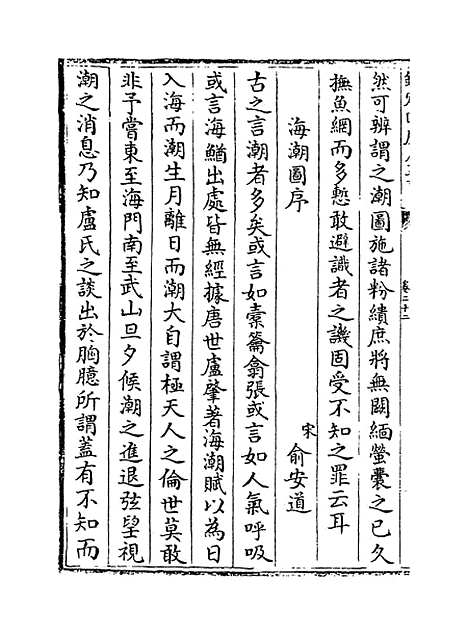 然可辨謂之潮圖施諸粉繢庶將無闕緬螢囊之已久
撫魚網而多慙敢避識者之譏固受不知之罪云耳
海潮圖序
宋 俞安道
古之言潮者多矣或言如橐籥翕張或言如人氣呼吸
或言海鰌出處皆無經據唐世盧肇著海潮賦以為日
入海而潮生月離日而潮大自謂極天人之倫世莫敢
非予嘗東至海門南至武山旦夕候潮之進退弦望視
潮之消息乃知盧氏之談出於胸臆所謂蓋有不知而
卷二十二